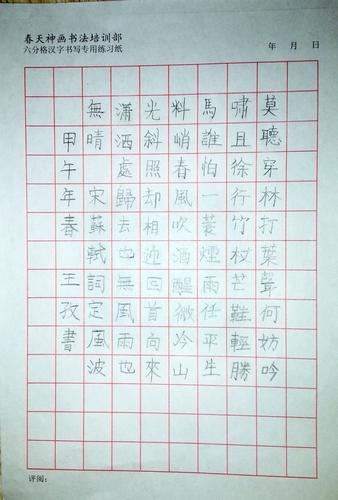 春天神画书法培训部
六分格汉字书写专用练习纸
年 月 日
莫聽穿林打葉聲何妨吟
嘯且徐行竹杖芒鞋輕勝
馬誰怕一蓑煙雨任平生
料峭春風吹酒醒微冷山
光斜照却相迎回首向來
瀟洒處歸去也無風雨也
無晴 宋蘇軾詞定風波
甲午年春 王孜書
评阅：